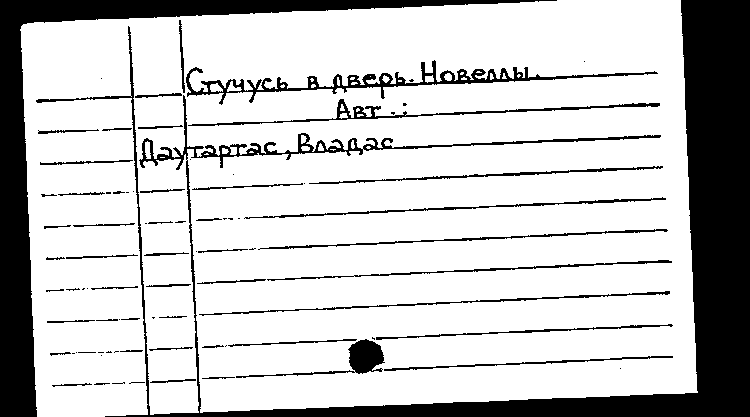 Стучусь в дверь. Новеллы.
Авт.:
Даутартас, Владас